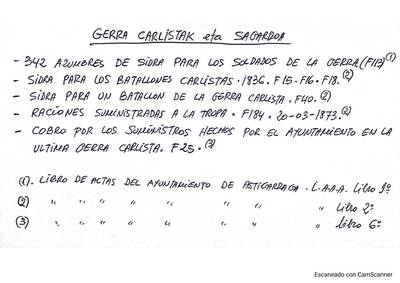 GERRA CARLISTAK eta SAGARDOA
- 342 AZUMBRES DE SIDRA PARA LOS SOLDADOS DE LA GERRA. (F117) (1)
- SIDRA PARA LOS BATALLONES CARLISTAS. 1836. F15-F16. F18. (2)
- SIDRA PARA UN BATALLON DE LA GERRA CARLISTA. F40. (2)
- RACIONES SUMINISTRADAS A LA TROPA. F184. 20-03-1873. (2)
- COBRO POR LOS SUMINISTROS HECHOS POR EL AYUNTAMIENTO EN LA
ULTIMA GERRA CARLISTA. F25. (3)
(1). LIBRO DE ACTAS DEL AYUNTAMIENTO DE ASTIGARRAGA. L.A.A.A. Libro 1º
(2) " " " " " " " " Libro 2º
(3) " " " " " " " " Libro 6º
Escaneado con CamScanner